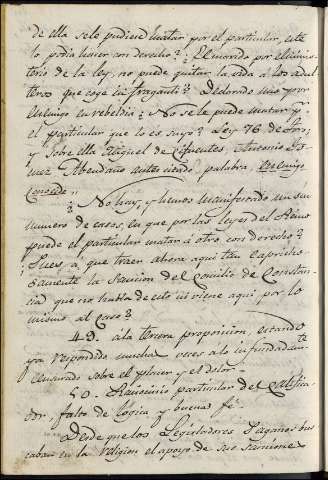 de ella se le pudiese matar por el particular, este
lo podia hacer con derecho? ¿El marido por el minis-
terio de la ley, no puede quitar la vida à los adul-
teros que coge in fraganti? Declarado uno por
enemigo en rebeldia ¿No se le puede matar p.r
el particular que lo es suyo? Ley 76 de Toro
y sobre ella Miguel de Cifuentes, Antonio Go-
mez, Abendaño antes citado, palabra, enemigo
conocido.,,
¿No hay, y hemos manifestado un sin
numero de casos, en que por las leyes del Reino
puede el particular matar à otro con derecho?
¿Pues à que traen ahora aqui tan capricho-
samente la Sancion del Concilio de Constan-
cia que no habla de esto ni viene aqui por lo
mismo al caso?
49. à la tercera proposicion, estando
ya respondido muchas veces a lo infundadam.te
censurado sobre el placer y el dolor.
50. Raciocinio particular del Califica-
dor, falto de logica y buena fé.
Desde que los Legisladores Paganos bus
caban en la religion el apoyo de sus sanciones